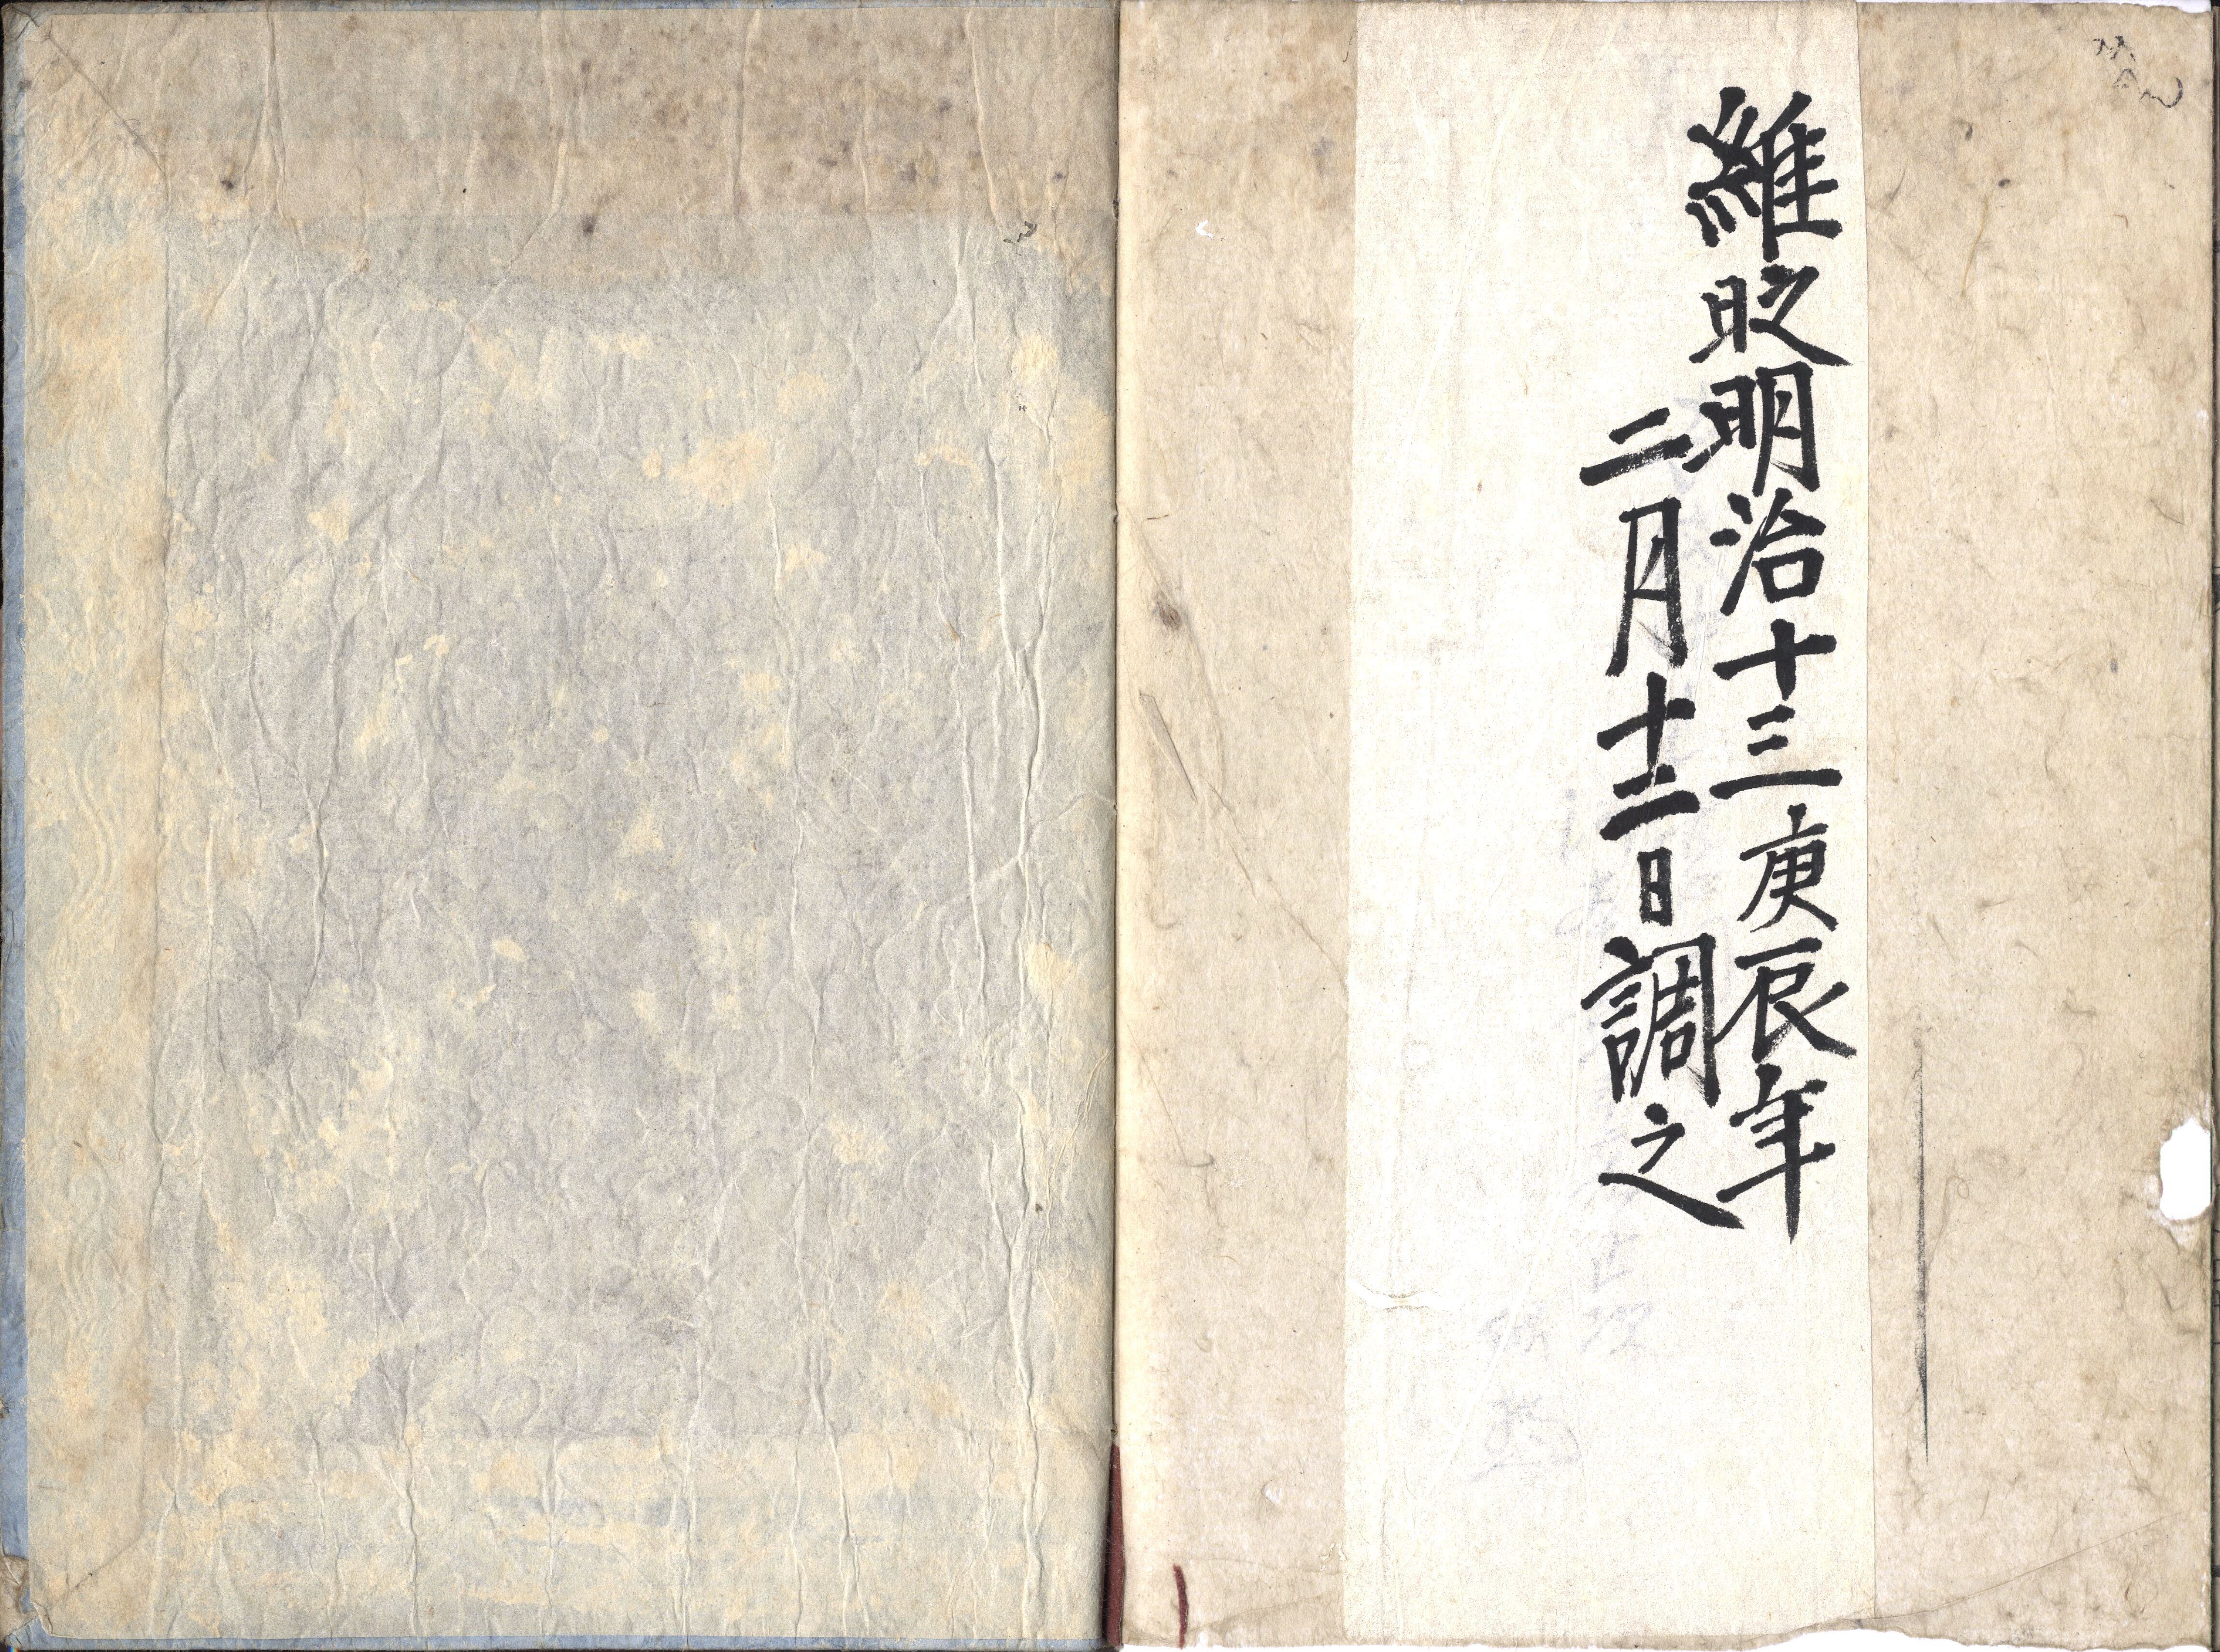 維旹明治十三庚辰年
二月十二日調之